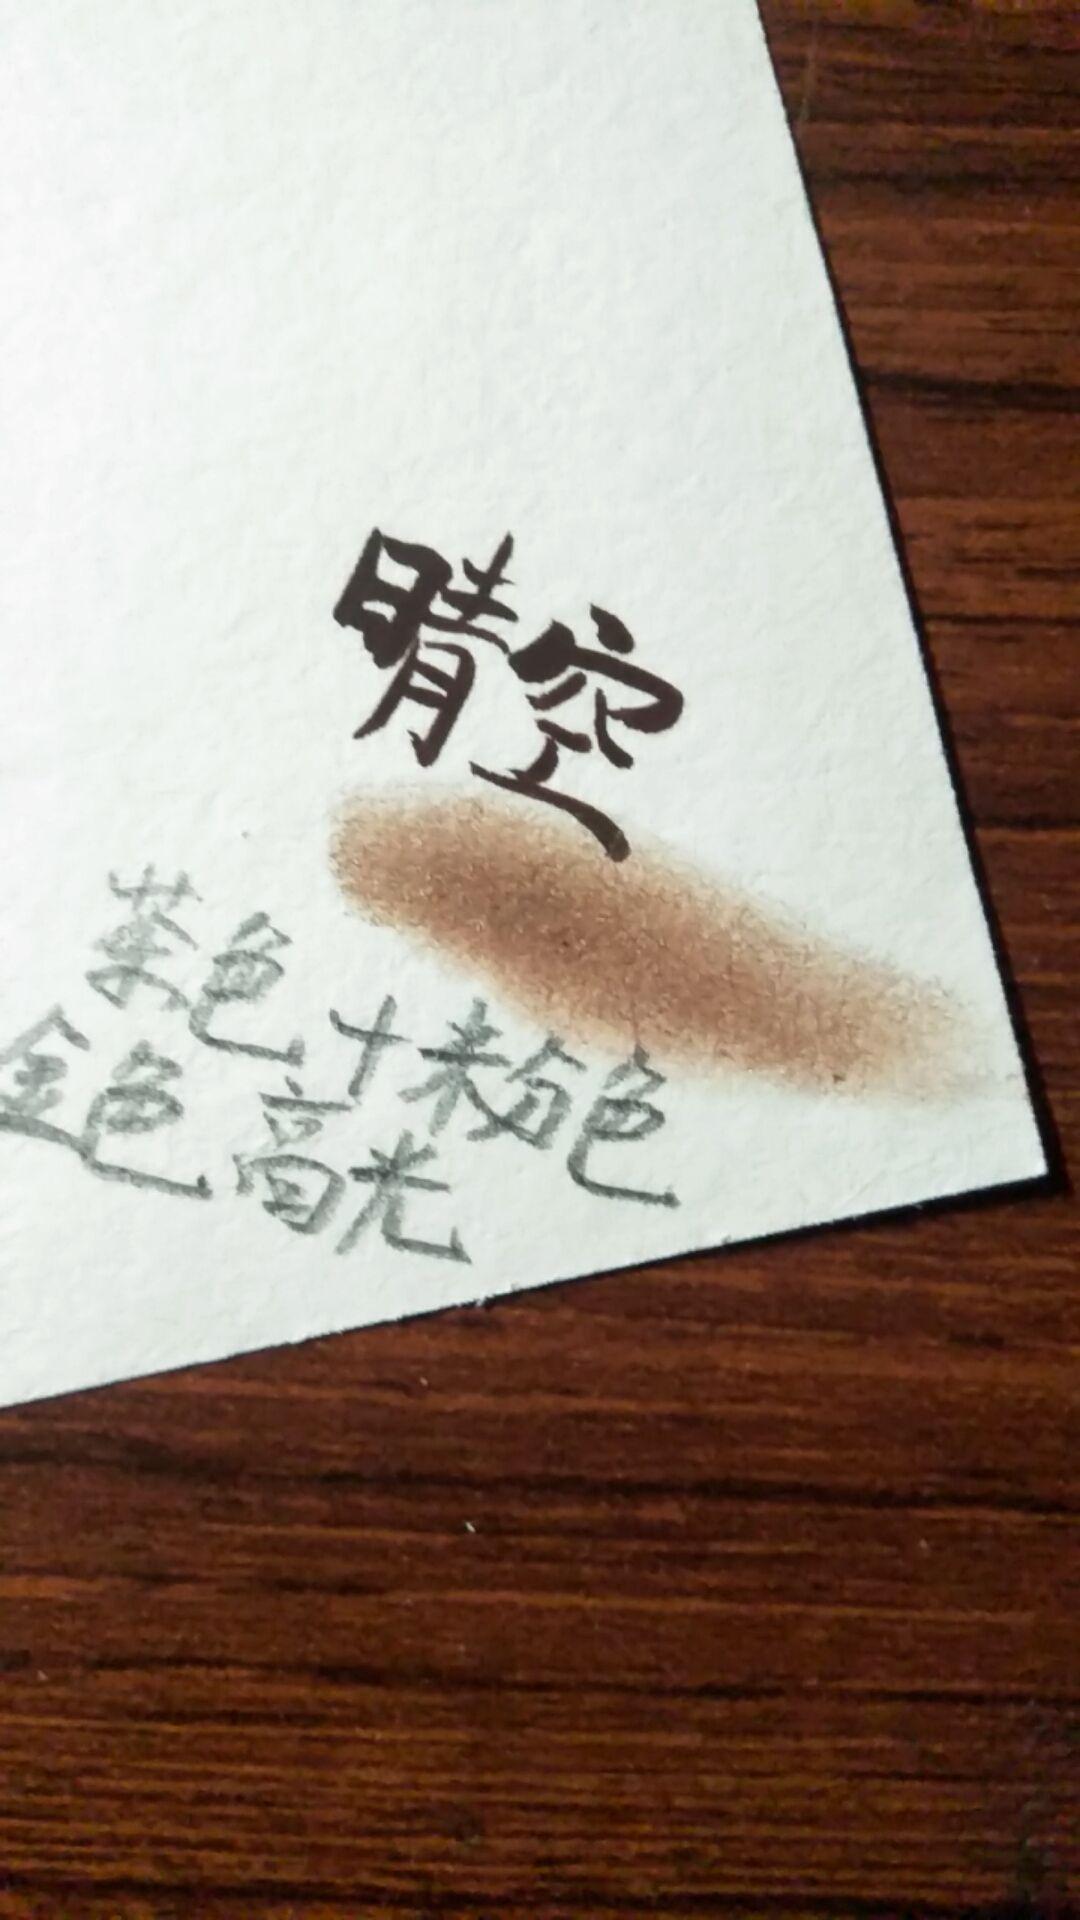 晴空
茶色+粉色
金色高光